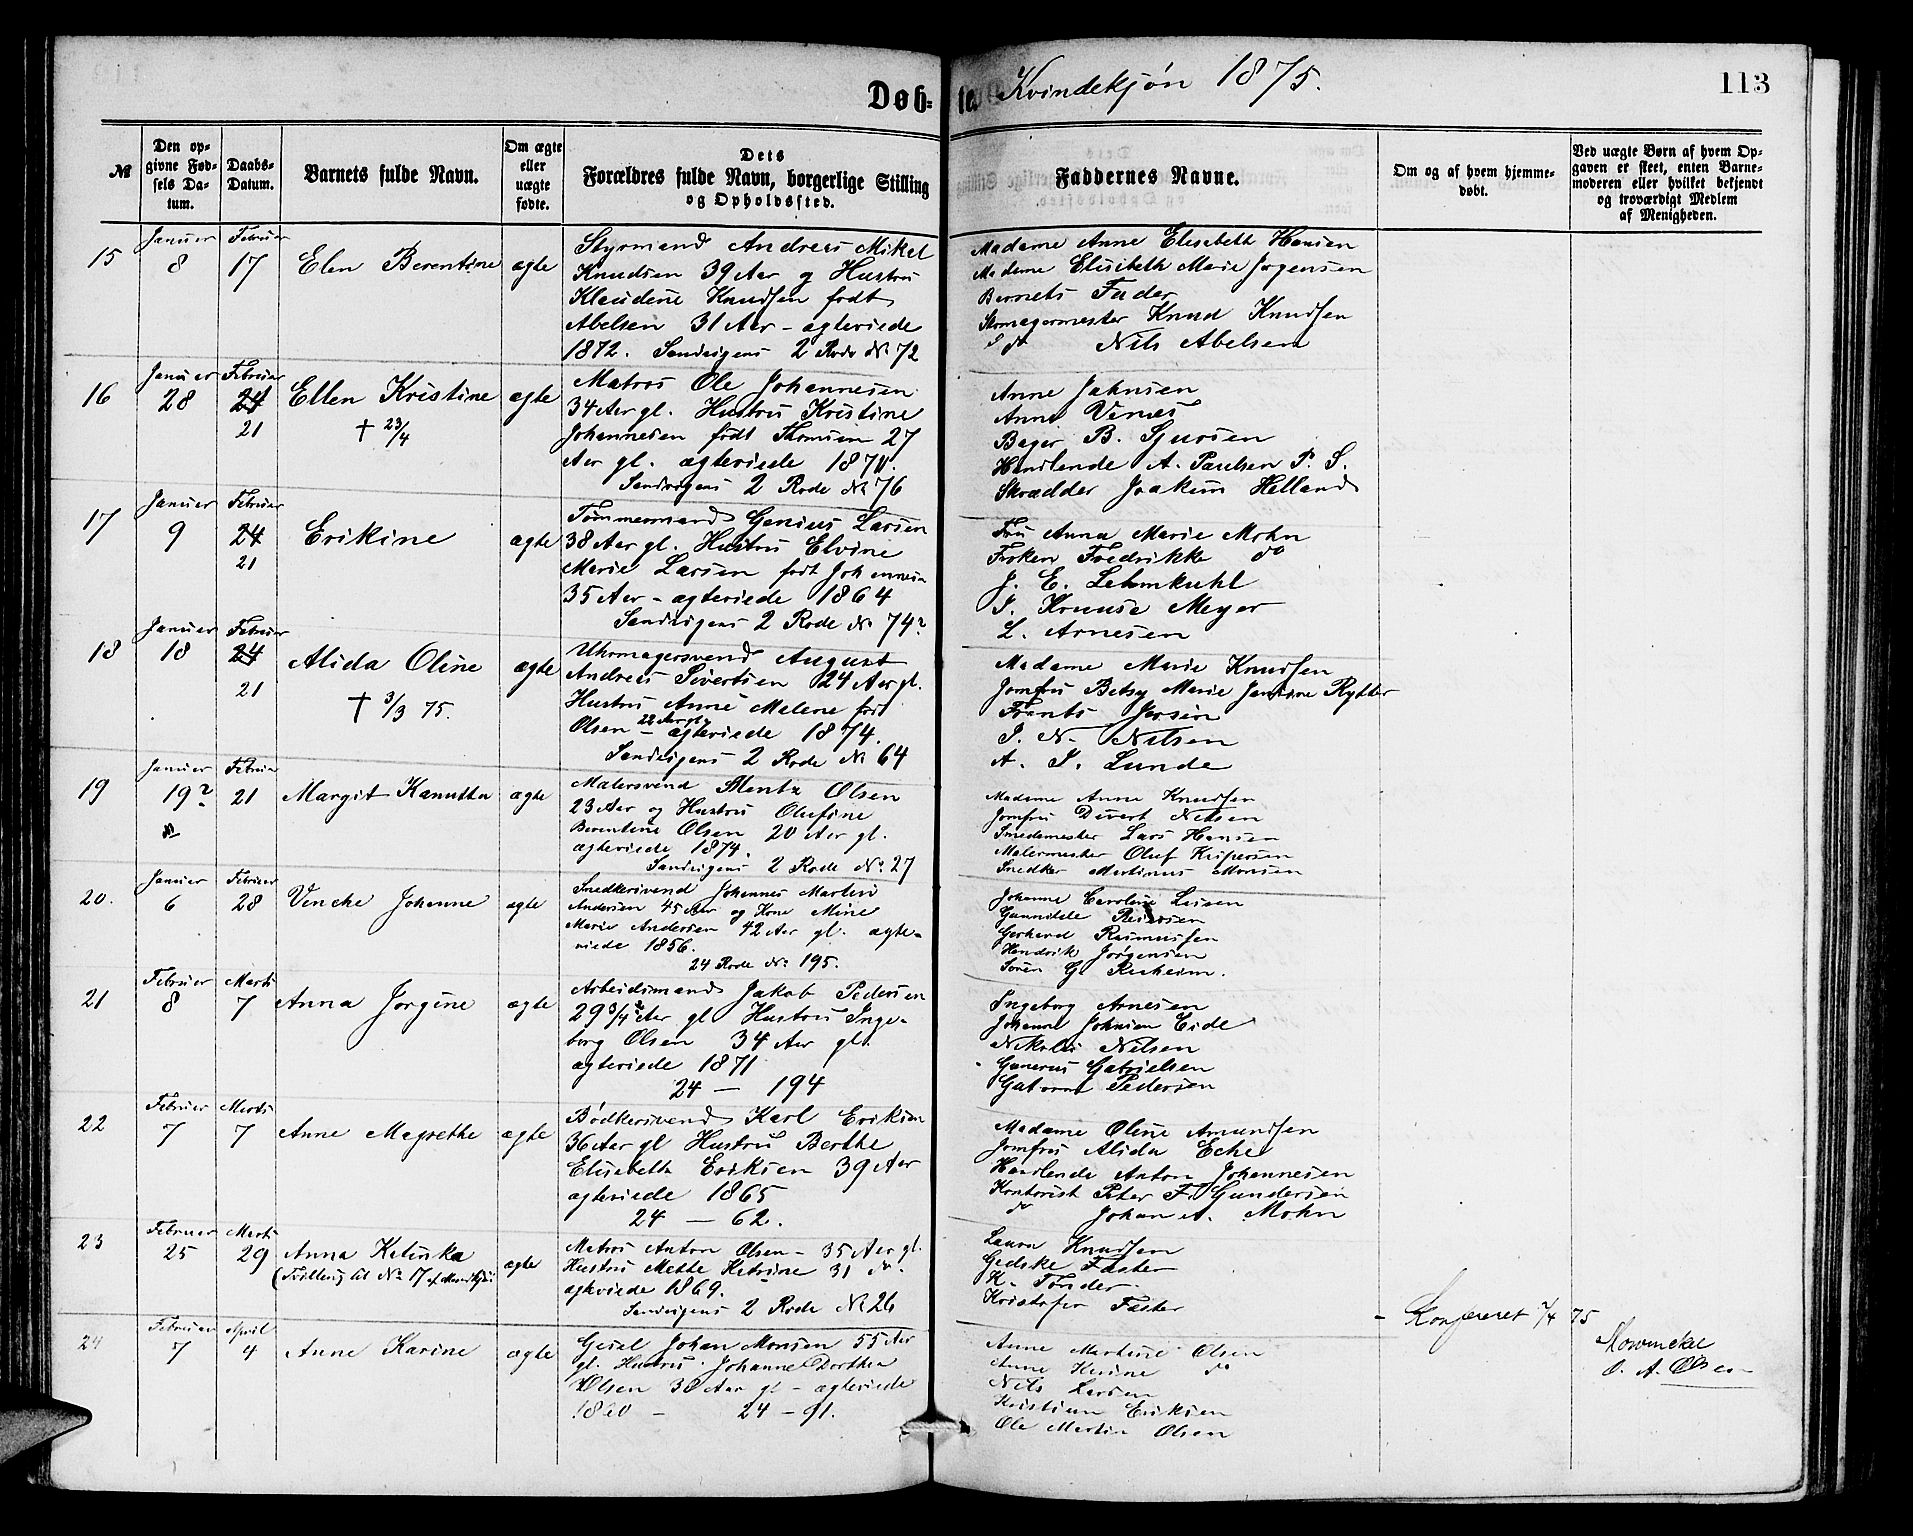 Døb= te Kvindekjøn 1875.
113
№
Den op=
givne Fød=
sels Da=
tum.
Daabs=
Datum.
Barnets fulde Navn.
Om ægte
eller
uægte
fødte.
Dets
Forældres fulde Navn, borgerlige Stilling
og Opholdssted.
Faddernes Navne.
Om og af hvem hjemme=
døbt.
Ved uægte Børn af hvem Op=
gaven er skeet, enten Barne=
moderen eller hvilket bekjendt
og troværdigt Medlem
af Menigheden.
15
Januer
8
Februer
17
Elen Berentine
ægte
Styrmand Andreas Mikel
Knudsen 39 Aar og Hustru
Klaudine Knudsen født
Abelsen 31 Aar – ægteviede
1872. Sandvigens 2 Rode № 72
Madame Anne Elisebeth Hansen
Madame Elisibeth Marie Jørgensen
Barnets Fader
Skomagermester Knud Knudsen
do Nils Abelsen
16
Januer
28
Februar
24
21
Ellen Kristine
† 23/4
ægte
Matros Ole Johannesen
34 Aar gl. Hustru Kristine
Johannesen født Thomsen 27
Aar gl. ægteviede 1870.
Sandvigens 2 Rode № 76
Anne Jahnsen
Anne
Bager B. Sjursen
Handlende A. Paulsen P. S.
Skrædder Joakim Helland
17
Januer
9
Februar
24
21
Erikine
ægte
Tømmermand Genius Larsen
38 Aar gl. Hustru Elvine
Marie Larsen født Johannesen
35 Aar – ægteviede 1864
Sandvigens 2 Rode № 74?
Fru Anna Marie Mohn
Frøken Fredrikke do
J. E. Lehmkuhl
J. Kruuse Meyer
L. Arnesen
18
Januer
18
Februar
24
21
Alida Oline
† 3/3 75.
ægte
Uhrmagersvend August
Andreas Sivertsen 24 Aar gl.
Hustru Anne Malene født
Olsen 22 Aar gl. – ægteviede 1874.
Sandvigens 2 Rode № 64
Madame Marie Knudsen
Jomfru Betsy Marie Jensine Rytter
Frents Jersin
J. N. Nilsen
A. J. Lunde
19
Januer
19?
Februar
21
Margit Kanutta
ægte
Malersvend Mentz Olsen
23 Aar og Hustru Olufine
Berentine Olsen 20 Aar gl.
ægteviede 1874.
Sandvigens 2 Rode № 27
Madame Anne Knudsen
Jomfru Divert Nilsen
Smedemester Lars Hansen
Malermester Oluf Kaspersen
Snedker Martinus Monsen
20.
Januer
6
Februar
28
Vencke Johanne
ægte
Snedkersvend Johannes Martin
Andersen 45 Aar og Kone Mine
Marie Andersen 42 Aar gl. ægte=
viede 1856.
24 Rode № 195.
Johanne Caroline Larsen
Gunnilde Pedersen
Gerhard Rasmussen
Hendrik Jørgensen
Søren G.
21
Februer
8
Marts
7
Anna Jørgine
ægte
Arbeidsmand Jakob Pedersen
29 3/4 Aar gl Hustru Inge=
borg Olsen 34 Aar gl.
ægteviede 1871
24 — 194
Ingeborg Arnesen
Johanne Johnsen Eide
Nikolai Nilsen
Gunerus Gabrielsen
Pedersen
22
Februer
7
Marts
7
Anne Magrethe
ægte
Bødkersvend Karl Eriksen
36 Aar gl Hustru Berthe
Elisabeth Eriksen 39 Aar
ægteviede 1865
24 — 62.
Madame Oline Amundsen
Jomfru Alida Eche
Handlende Anton Johannesen
Kontorist Peter Fr. Gundersen
do Johan A. Mohn
23
Februer
25
Marts
29
Anna Katinka
(Tvilling til № 17 af Mandkjøn)
ægte
Matros Anton Olsen – 35 Aar gl.
Hustru Mette Katrine 31 do.
ægteviede 1869.
Sandvigens 2 Rode № 26
Laura Knudsen
Gedske Faster
K. Tønder
Kristofer Faster
24
Februer
7
April
4
Anne Karine
ægte
Johan Monsen 55 Aar
gl. Hustru Johanne Dorthea
Olsen 30 Aar gl – ægteviede
24 – 91.
Anne Martine Olsen
Anne Karine do
Nils Larsen
Kristian Eriksen
Ole Martin Olsen
– Konfereret 7/4 75
Rowincke
O. A. Olsen